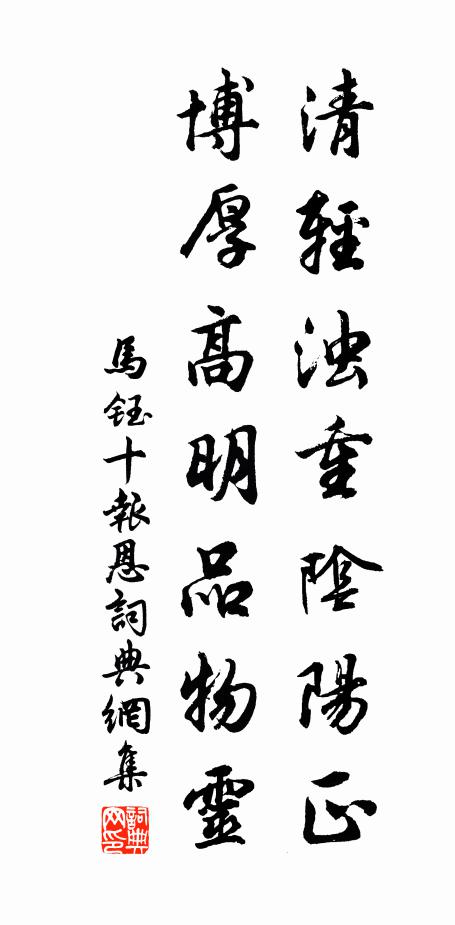 清輕浊重陰陽正
博厚高明品物靈
馬鈺十報恩詞典網集
詞典网印